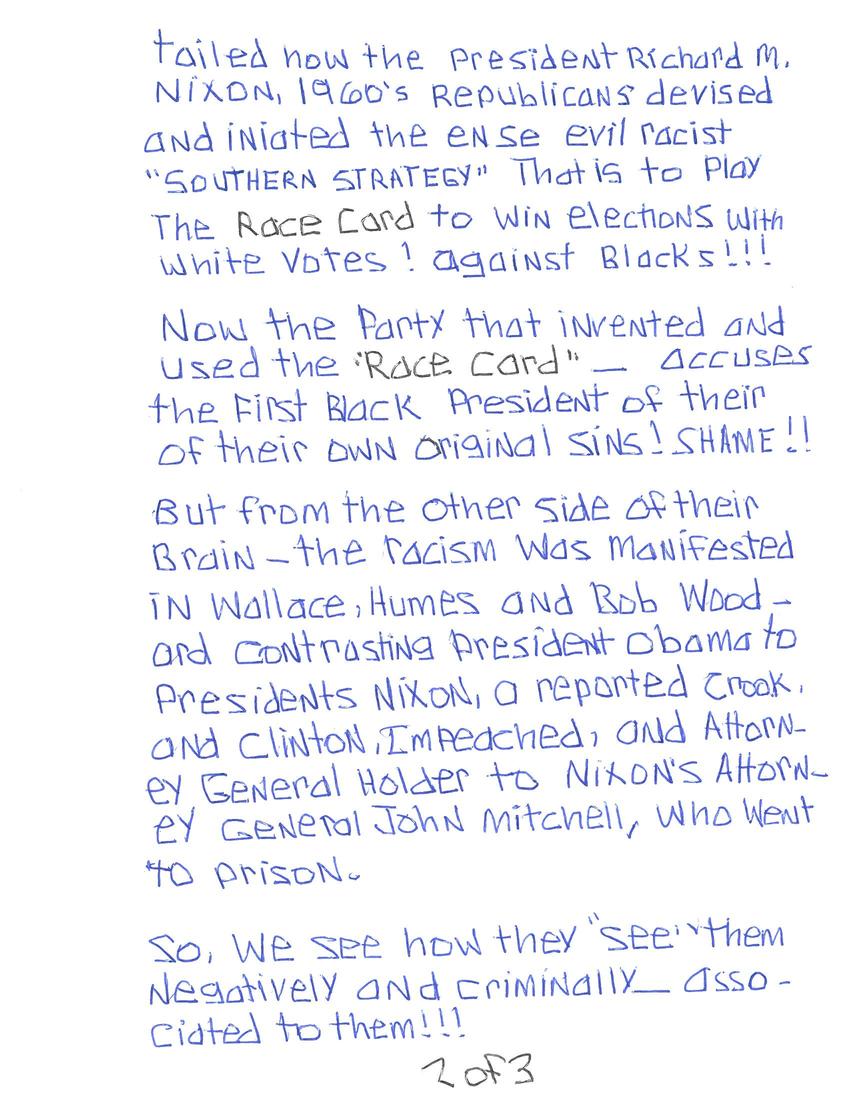 tailed now the President Richard M.
NIXON, 1960's Republicans devised
AND iniated the ENSE evil racist
"SOUTHERN STRATEGY" That is to Play
The Race Card to win elections with
white Votes! against Blacks!!!
Now the Party that invented and
used the "Race Card" — accuses
the First Black President of their
of their own original sins! SHAME!!
But from the other side of their
Brain – the racism was manifested
in Wallace, Humes and Bob Wood-
ard contrasting President Obama to
Presidents Nixon, a reported crook,
and Clinton, Impeached, and Attorn-
ey General Holder to Nixon's Attorn-
ey General John Mitchell, who went
to prison.
So, we see how they "see" them
Negatively and criminally — asso-
ciated to them!!!
2 of 3